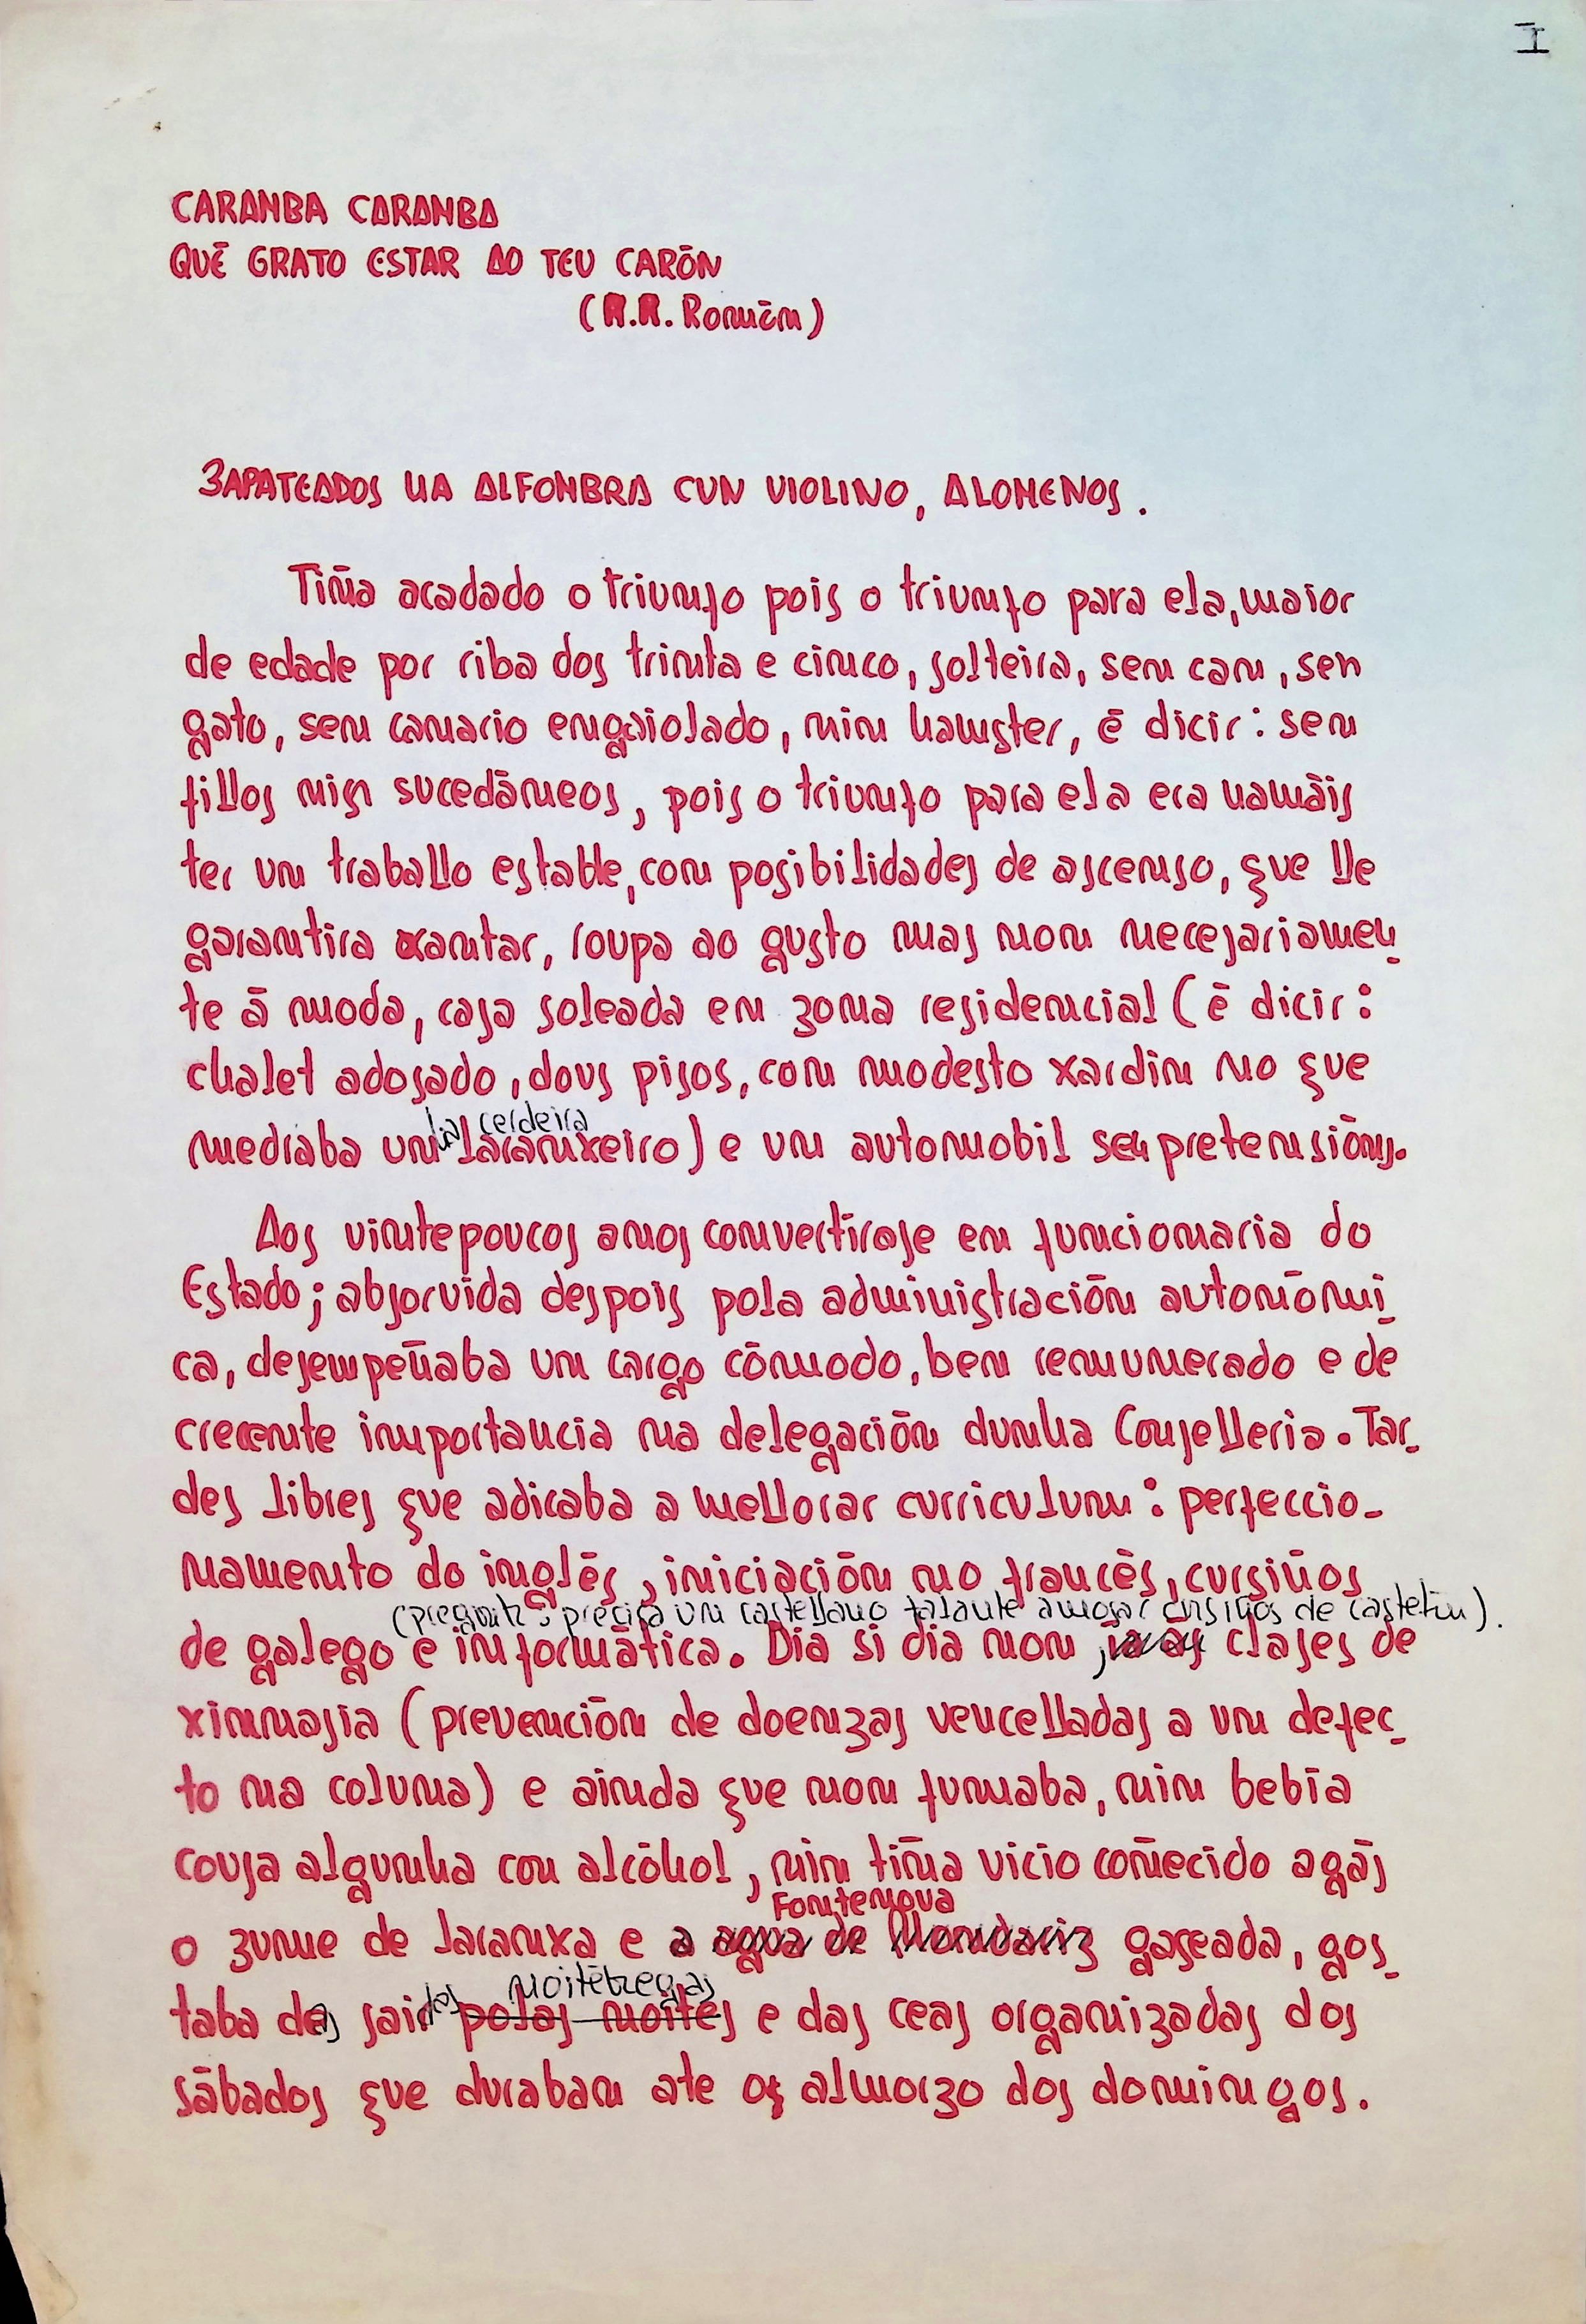 I
CARANBA CARANBA
QUÉ GRATO ESTAR AO TEU CARÓN
(R.R. Román)
ZAPATEADOS UA ALFOMBRA CUN VIOLINO, ALOMENOS.
Tiña acadado o triunfo pois o triunfo para ela, maior
de edade por riba dos trinta e cinco, solteira, sen can, sen
gato, sen canario engaiolado, nin hamster, é dicir: sen
fillos nin sucedáneos, pois o triunfo para ela era namáis
ter un traballo estable, con posibilidades de ascenso, que lle
garantira xantar, roupa ao gusto mas non necesariamen-
te á moda, casa soleada en zona residencial (é dicir:
chalet adosado, dous pisos, con modesto xardín no que
ha cerdeira
mediaba un laranxeiro) e un automobil sen pretensións.
Aos vintepoucos anos convertirase en funcionaria do
Estado; absorvida despois pola administración autonómi-
ca, desempeñaba un cargo cómodo, ben remunerado e de
crecente importancia na delegación dunha Consellería. Tar-
des libres que adicaba a mellorar curriculum: perfeccio-
namento do inglés, iniciación no francés, cursiños
(pregunta: precisa un castellano falante amosar cursiños de castelán).
de galego e informática. Dia si dia non ía ás clases de
ximnasia (prevención de doenzas vencelladas a un defec-
to na coluna) e ainda que non fumaba, nin bebía
cousa algunha con alcóhol, nin tiña vicio coñecido agás
Fontenova
o zume de laranxa e a agua de Mondariz gaseada, gos-
noitébregas
taba de sair polas noites e das ceas organizadas dos
sábados que duraban ate os almorzo dos domingos.